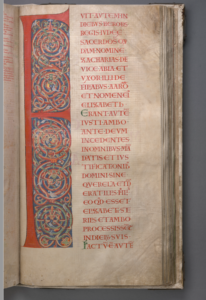 VIT AVTEM IN
DIEBVS HERODIS
REGIS IVDEE
SACERDOS QVI
DAM NOMINE
ZACHARIAS DE
VICE ABIA ET
VXOR ILLI DE
FILIABVS AARŌ
ET NOMEN EI
ELISABETH
ERANT AVTĒ
IVSTI AMBO
ANTE DEVM
INCEDENTES
IN OMNIBVS MĀ
DATIS ET IVS
TIFICATIONIB
DOMINI SINE
QVERELA ET Ñ
ERAT ILLIS
EO QD ESSET
ELISABET STE
RILIS ET AMBO
PROCESSISSĒT
IN DIEBVS SVIS